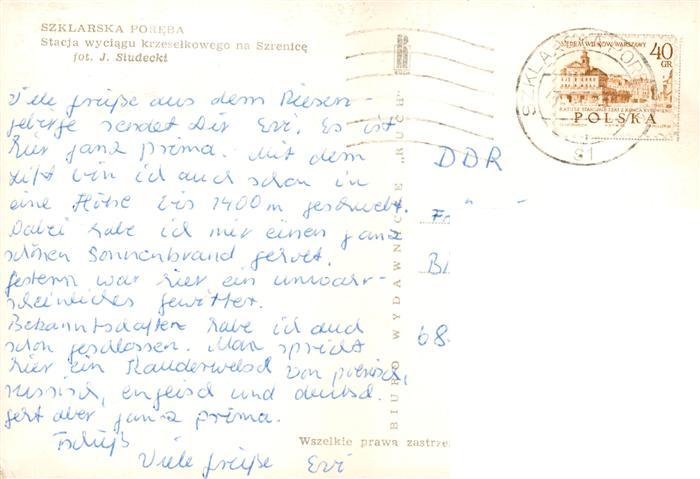 SZKLARSKA PORĘBA
Stacja wyciągu krzesełkowego na Szrenicę
fot. J. Siudecki
Viele Grüße aus dem Riesen-
gebirge sendet Dir Evi. Es ist
hier ganz prima. Mit dem
Lift bin ich auch schon in
eine Höhe bis 1400 m geschwebt.
Dabei habe ich mir einen ganz
schönen Sonnenbrand geholt.
Gestern war hier ein unwahr-
scheinliches Gewitter.
Bekanntschaften habe ich auch
schon geschlossen. Man spricht
hier ein Kauderwelsch von polnisch,
russisch, englisch und deutsch.
Geht aber ganz prima.
Tschüß
Viele Grüße Evi
BIURO WYDAWNICZE „RUCH"
Wszelkie prawa zastrze
DDR
Fr
Bi
68
SZKLARSKA PORĘBA
S1
40
GR
POLSKA